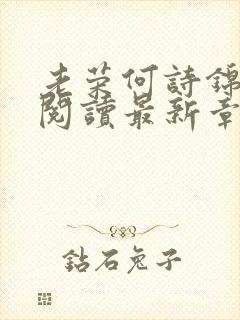 老荣何詩錦
閱讀最新章
鉆石兔子